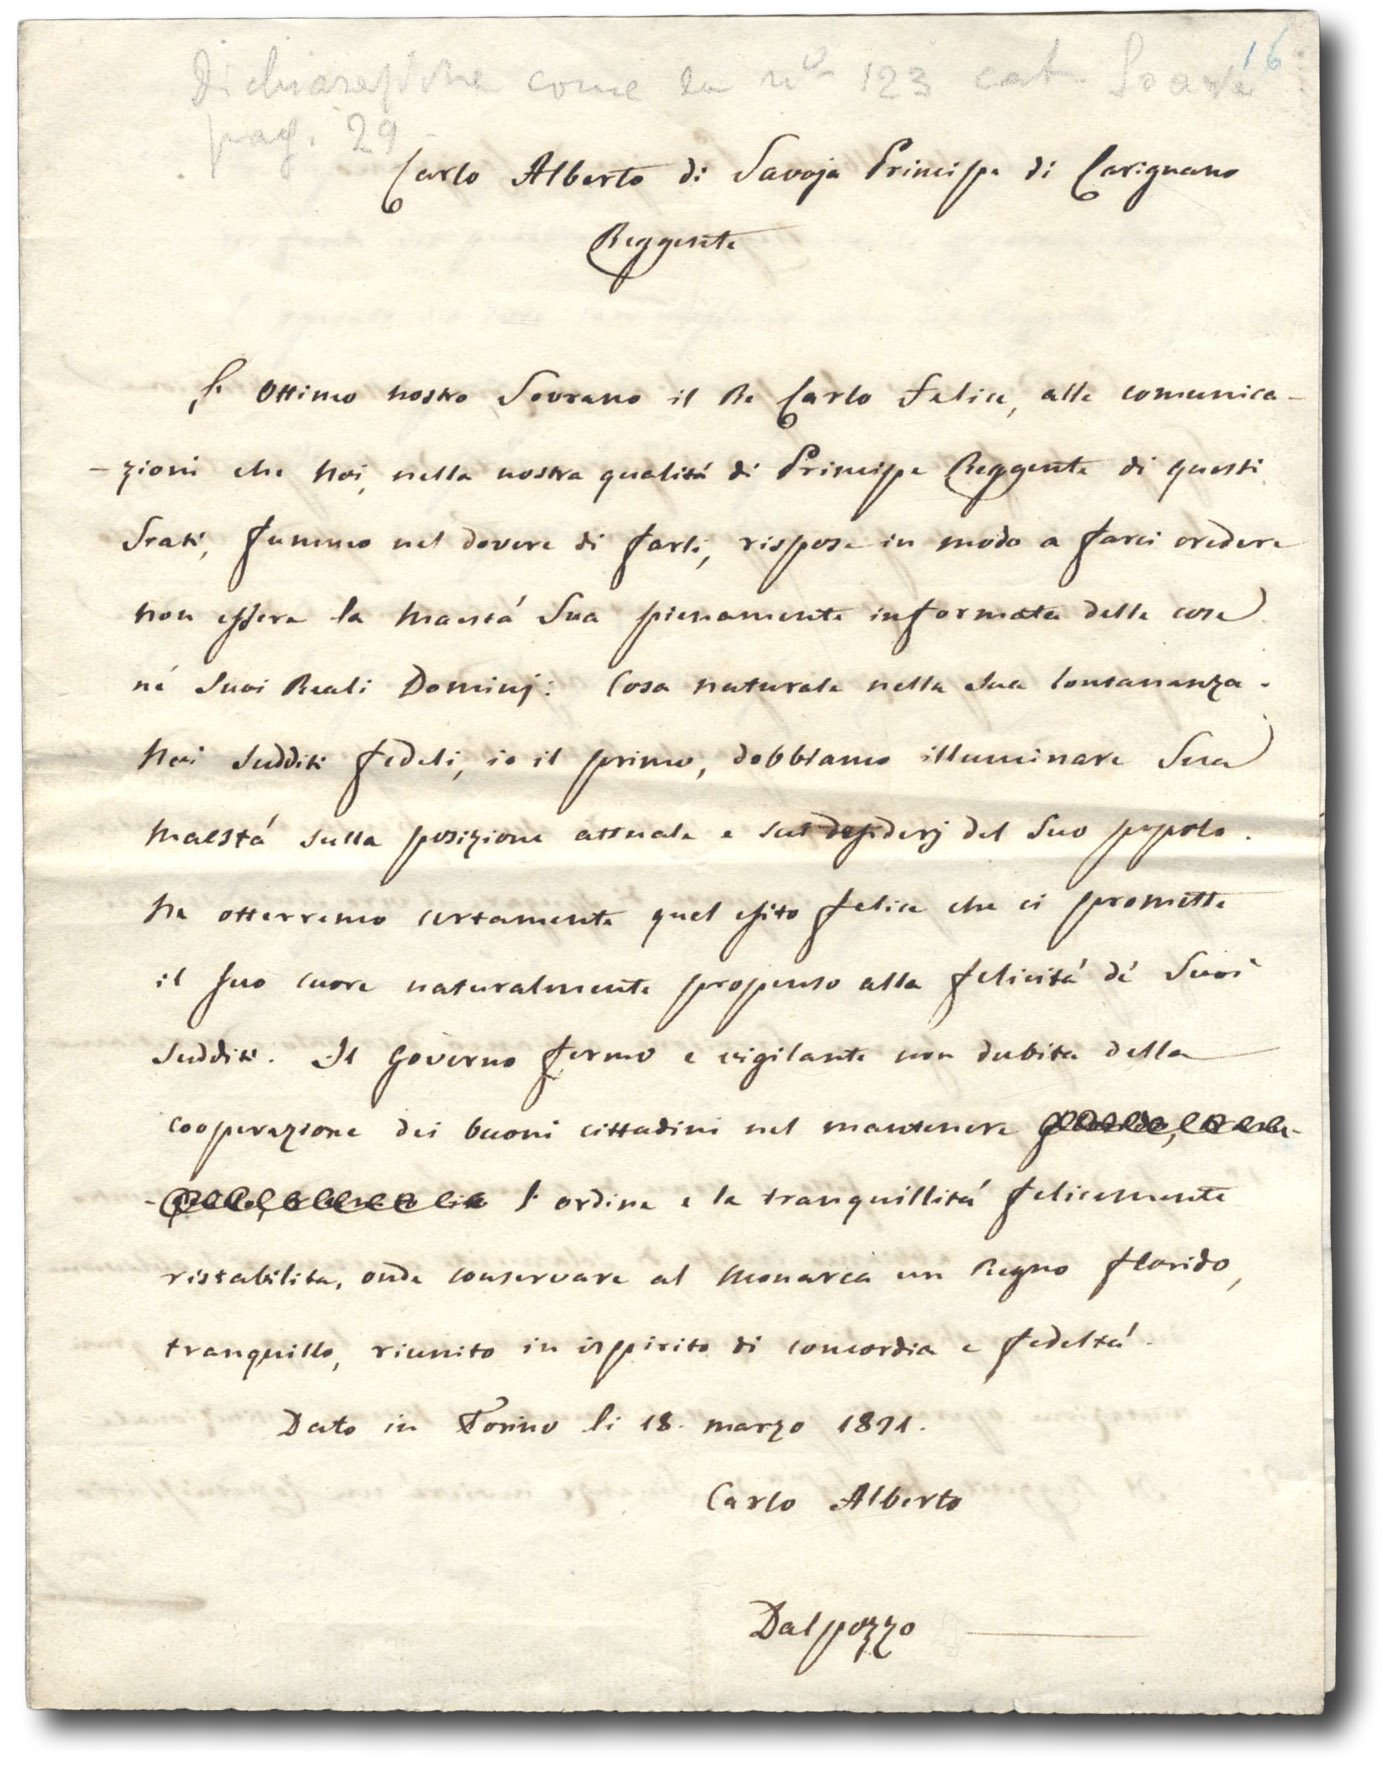 16
Dichiarazione come da nº 123 cat.
pag. 29
Carlo Alberto di Savoja Principe di Carignano
Reggente
L' Ottimo nostro Sovrano il Re Carlo Felice, alle comunica-
-zioni che Noi, nella nostra qualitá di Principe Reggente di questi
Stati, fummo nel dovere di farli, rispose in modo a farci credere
non essere la Maestá Sua pienamente informata delle cose
né Suoi Reali Dominj: Cosa naturale nella sua lontananza.
Noi sudditi fedeli, io il primo, dobbiamo illuminare Sua
Maestá sulla posizione attuale e sui desiderj del Suo popolo.
Ne otterremo certamente quel esito felice che ci promette
il Suo cuore naturalmente propenso alla felicitá dé Suoi
Sudditi. Il Governo fermo e vigilante non dubita della
cooperazione dei buoni cittadini nel mantenere
l'ordine e la tranquillitá felicemente
ristabilita, onde conservare al Monarca un Regno florido,
tranquillo, riunito in ispirito di concordia e fedeltá.
Dato in Torino li 18. marzo 1821.
Carlo Alberto
Dalpozzo